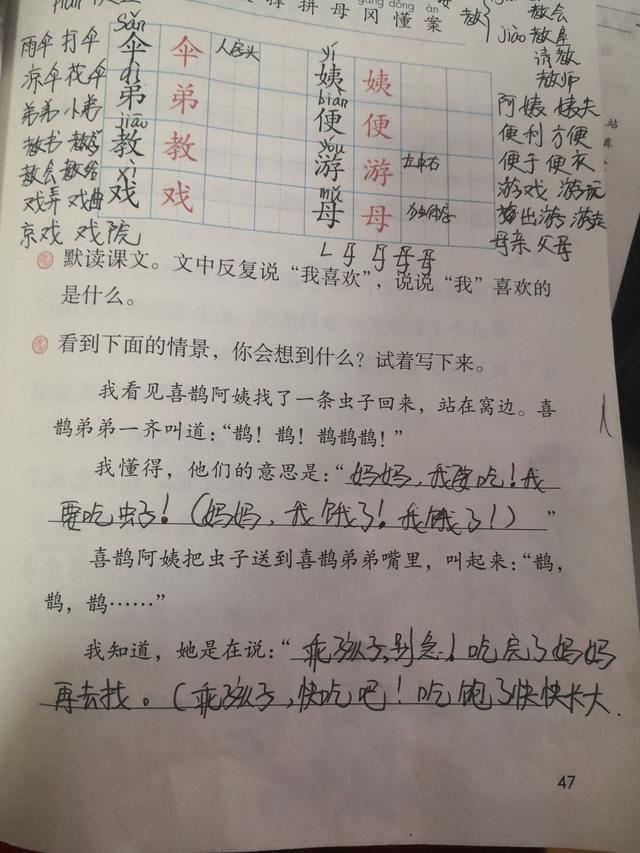 sǎn
雨伞 打伞 伞 伞 人字头 yí 姨 姨 阿姨 姨夫
凉伞 花伞 dì 弟 弟 biàn 便 便 便利 方便
弟弟 小弟 jiāo 教 教 yóu 游 游 左中右 便于 便衣
教书 教学 xì 戏 戏 mǔ 母 母 游戏 游玩
教会 教给 出游
戏弄 戏曲 母亲 父母
京戏 戏院
撑 拼 母 冈 懂 案
教会
jiào
请教
教师
默读课文。文中反复说“我喜欢”,说说“我”喜欢的
是什么。
看到下面的情景,你会想到什么?试着写下来。
我看见喜鹊阿姨找了一条虫子回来,站在窝边。喜
鹊弟弟一齐叫道:“鹊!鹊!鹊鹊鹊!”
我懂得,他们的意思是:“妈妈,我要吃!我
要吃虫子!(妈妈,我饿了!我饿了!)”
喜鹊阿姨把虫子送到喜鹊弟弟嘴里,叫起来:“鹊,
鹊,鹊……”
我知道,她是在说:“乖孩子,别急!吃完了妈妈
再去找。(乖孩子,快吃吧!吃饱了快快长大.
47